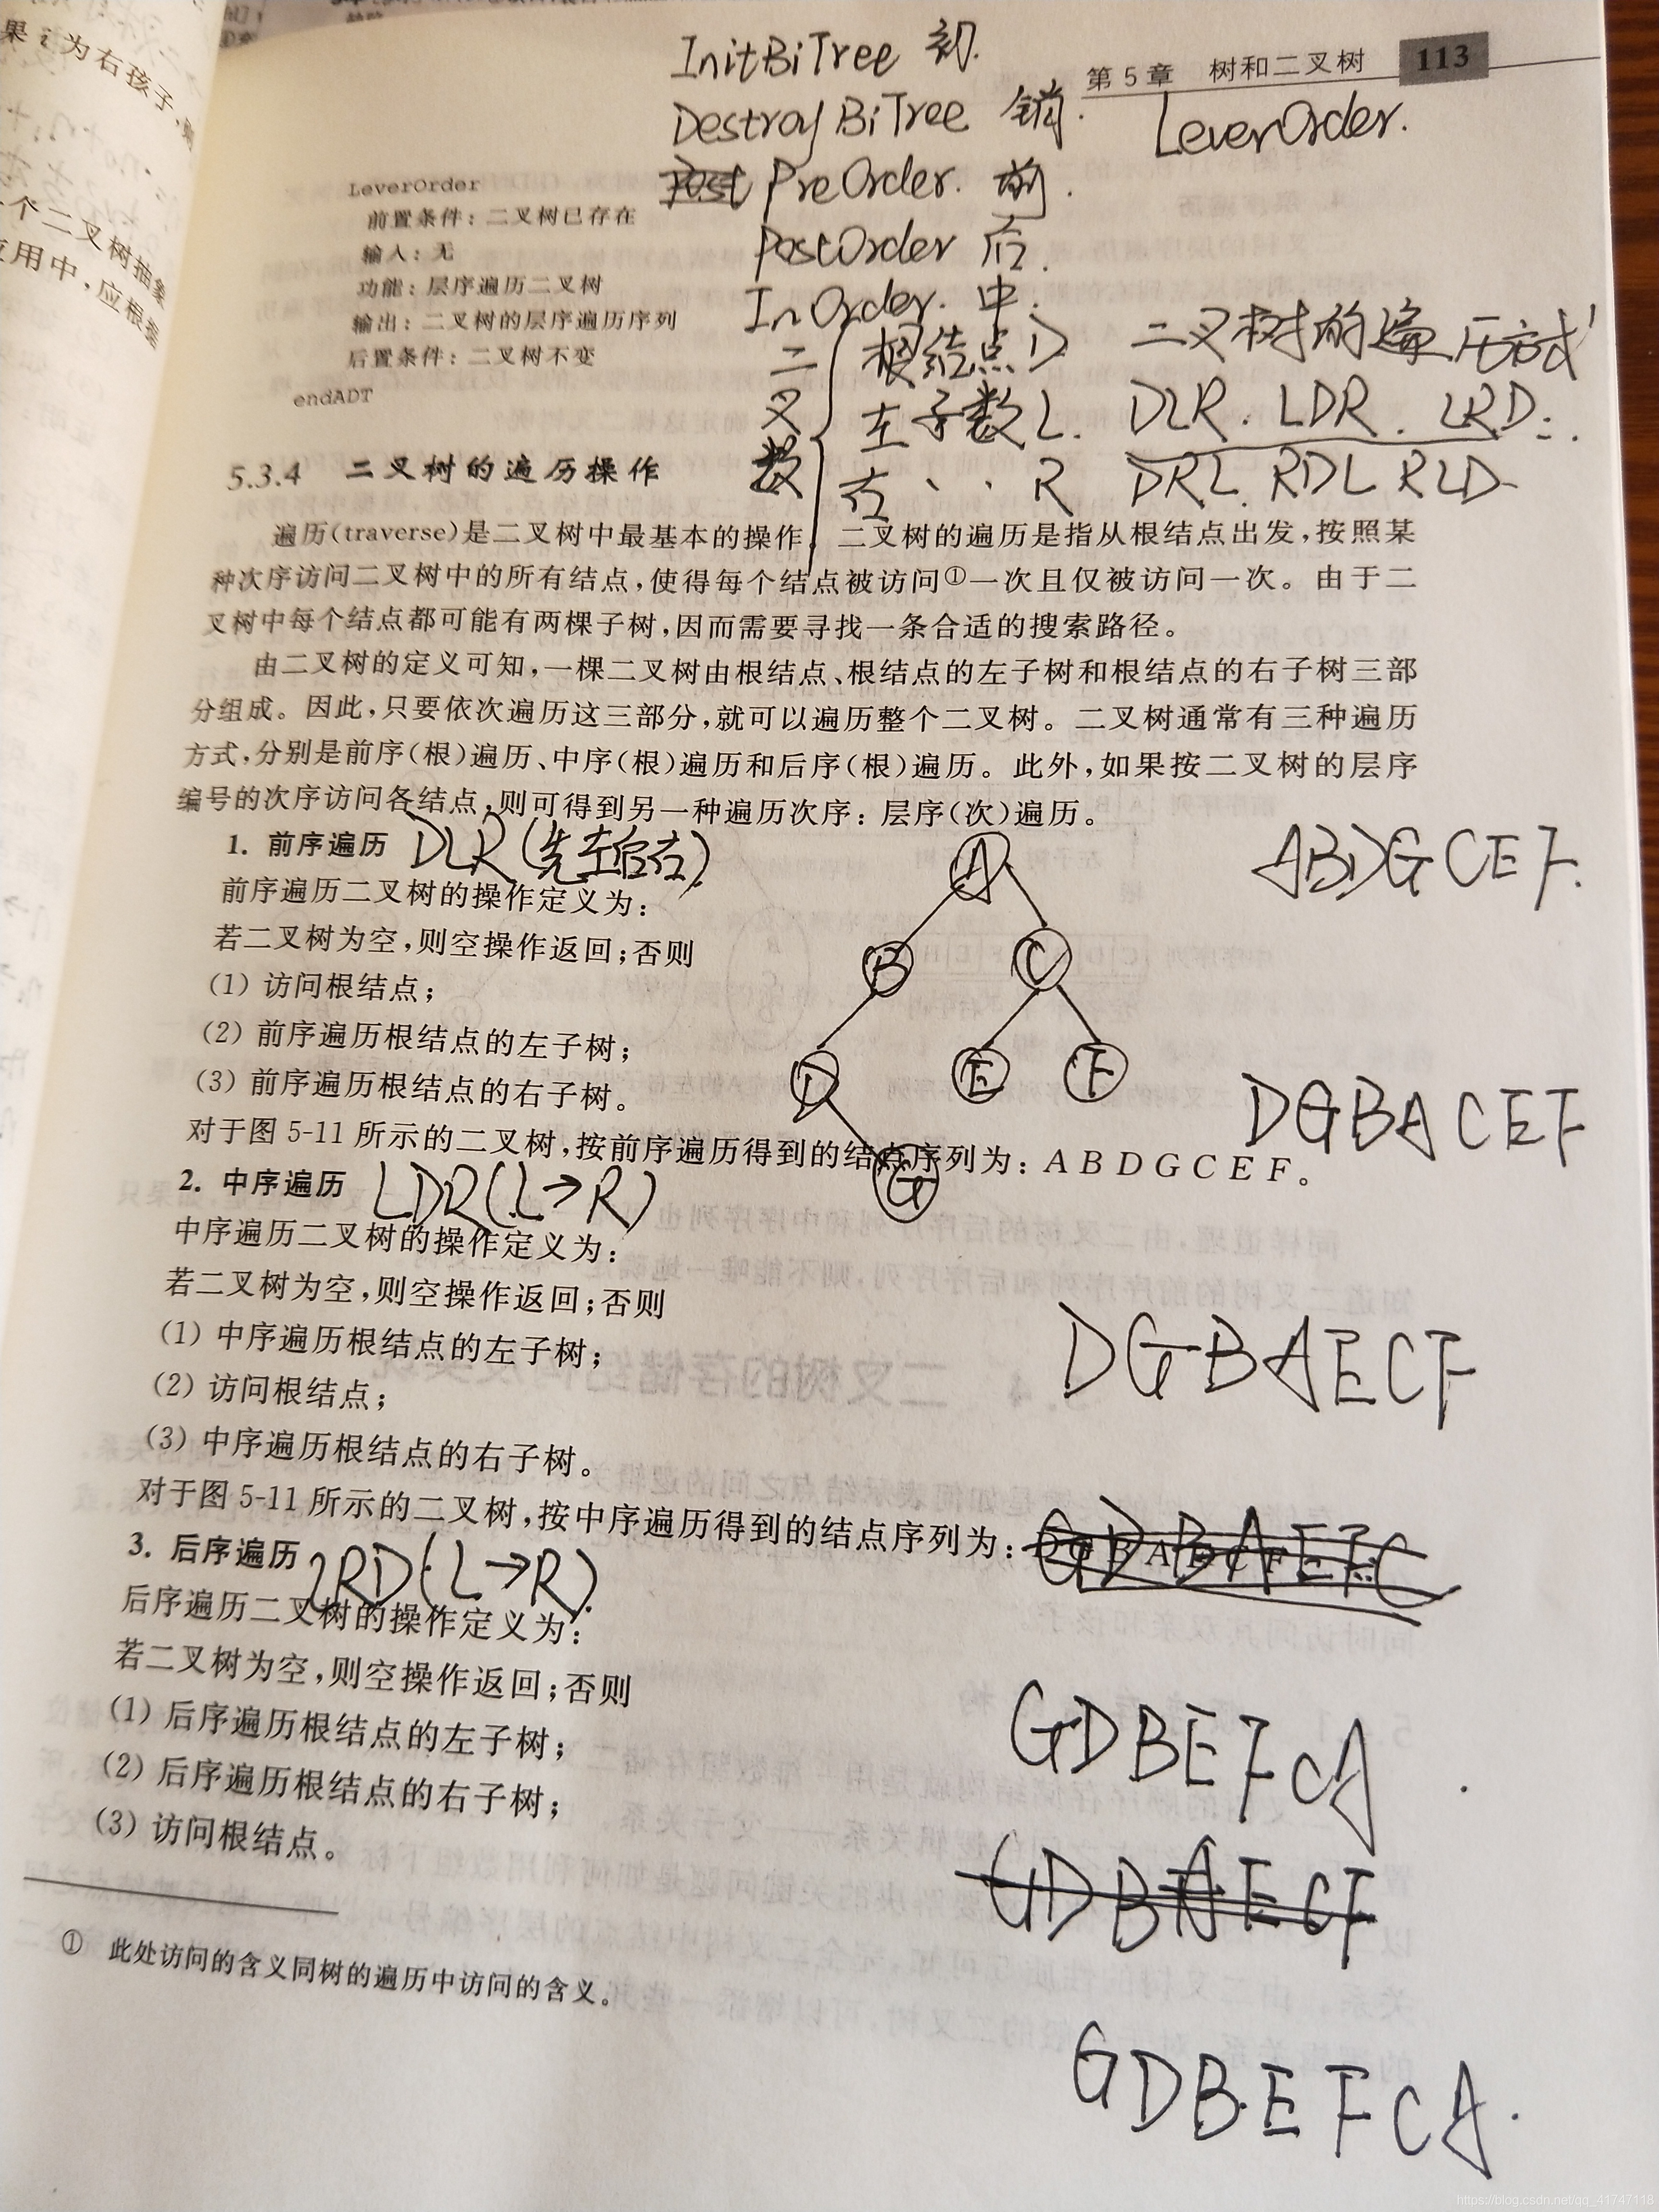 InitBiTree 初.
第 5 章 树和二叉树 113
DestroyBiTree 销.
LeverOrder.
PreOrder. 前.
PostOrder 后.
InOrder. 中.
LeverOrder
前置条件：二叉树已存在
输入：无
功能：层序遍历二叉树
输出：二叉树的层序遍历序列
后置条件：二叉树不变
endADT
二叉数
根结点 D
左子数 L.
右 、、 R
二叉树的遍历方式
DLR. LDR. LRD.
DRL. RDL RLD
5.3.4 二叉树的遍历操作
遍历(traverse)是二叉树中最基本的操作。二叉树的遍历是指从根结点出发，按照某
种次序访问二叉树中的所有结点，使得每个结点被访问①一次且仅被访问一次。由于二
叉树中每个结点都可能有两棵子树，因而需要寻找一条合适的搜索路径。
由二叉树的定义可知，一棵二叉树由根结点、根结点的左子树和根结点的右子树三部
分组成。因此，只要依次遍历这三部分，就可以遍历整个二叉树。二叉树通常有三种遍历
方式，分别是前序(根)遍历、中序(根)遍历和后序(根)遍历。此外，如果按二叉树的层序
编号的次序访问各结点，则可得到另一种遍历次序：层序(次)遍历。
1. 前序遍历 DLR(先左后右)
前序遍历二叉树的操作定义为：
若二叉树为空，则空操作返回；否则
(1) 访问根结点；
(2) 前序遍历根结点的左子树；
(3) 前序遍历根结点的右子树。
A
B C
D E F
G
ABDGCEF.
DGBACEF
对于图 5-11 所示的二叉树，按前序遍历得到的结点序列为：A B D G C E F。
2. 中序遍历 LDR(L→R)
中序遍历二叉树的操作定义为：
若二叉树为空，则空操作返回；否则
(1) 中序遍历根结点的左子树；
(2) 访问根结点；
(3) 中序遍历根结点的右子树。
DGBAECF
对于图 5-11 所示的二叉树，按中序遍历得到的结点序列为：
3. 后序遍历 LRD(L→R).
后序遍历二叉树的操作定义为：
若二叉树为空，则空操作返回；否则
(1) 后序遍历根结点的左子树；
(2) 后序遍历根结点的右子树；
(3) 访问根结点。
GDBEFCA
GDBAECF
GDBEFCA.
① 此处访问的含义同树的遍历中访问的含义。
果 i 为右孩子，
个二叉树抽象
应用中，应根据
https://blog.csdn.net/qq_41747118